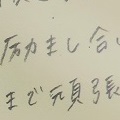 励まし合い
まで頑張